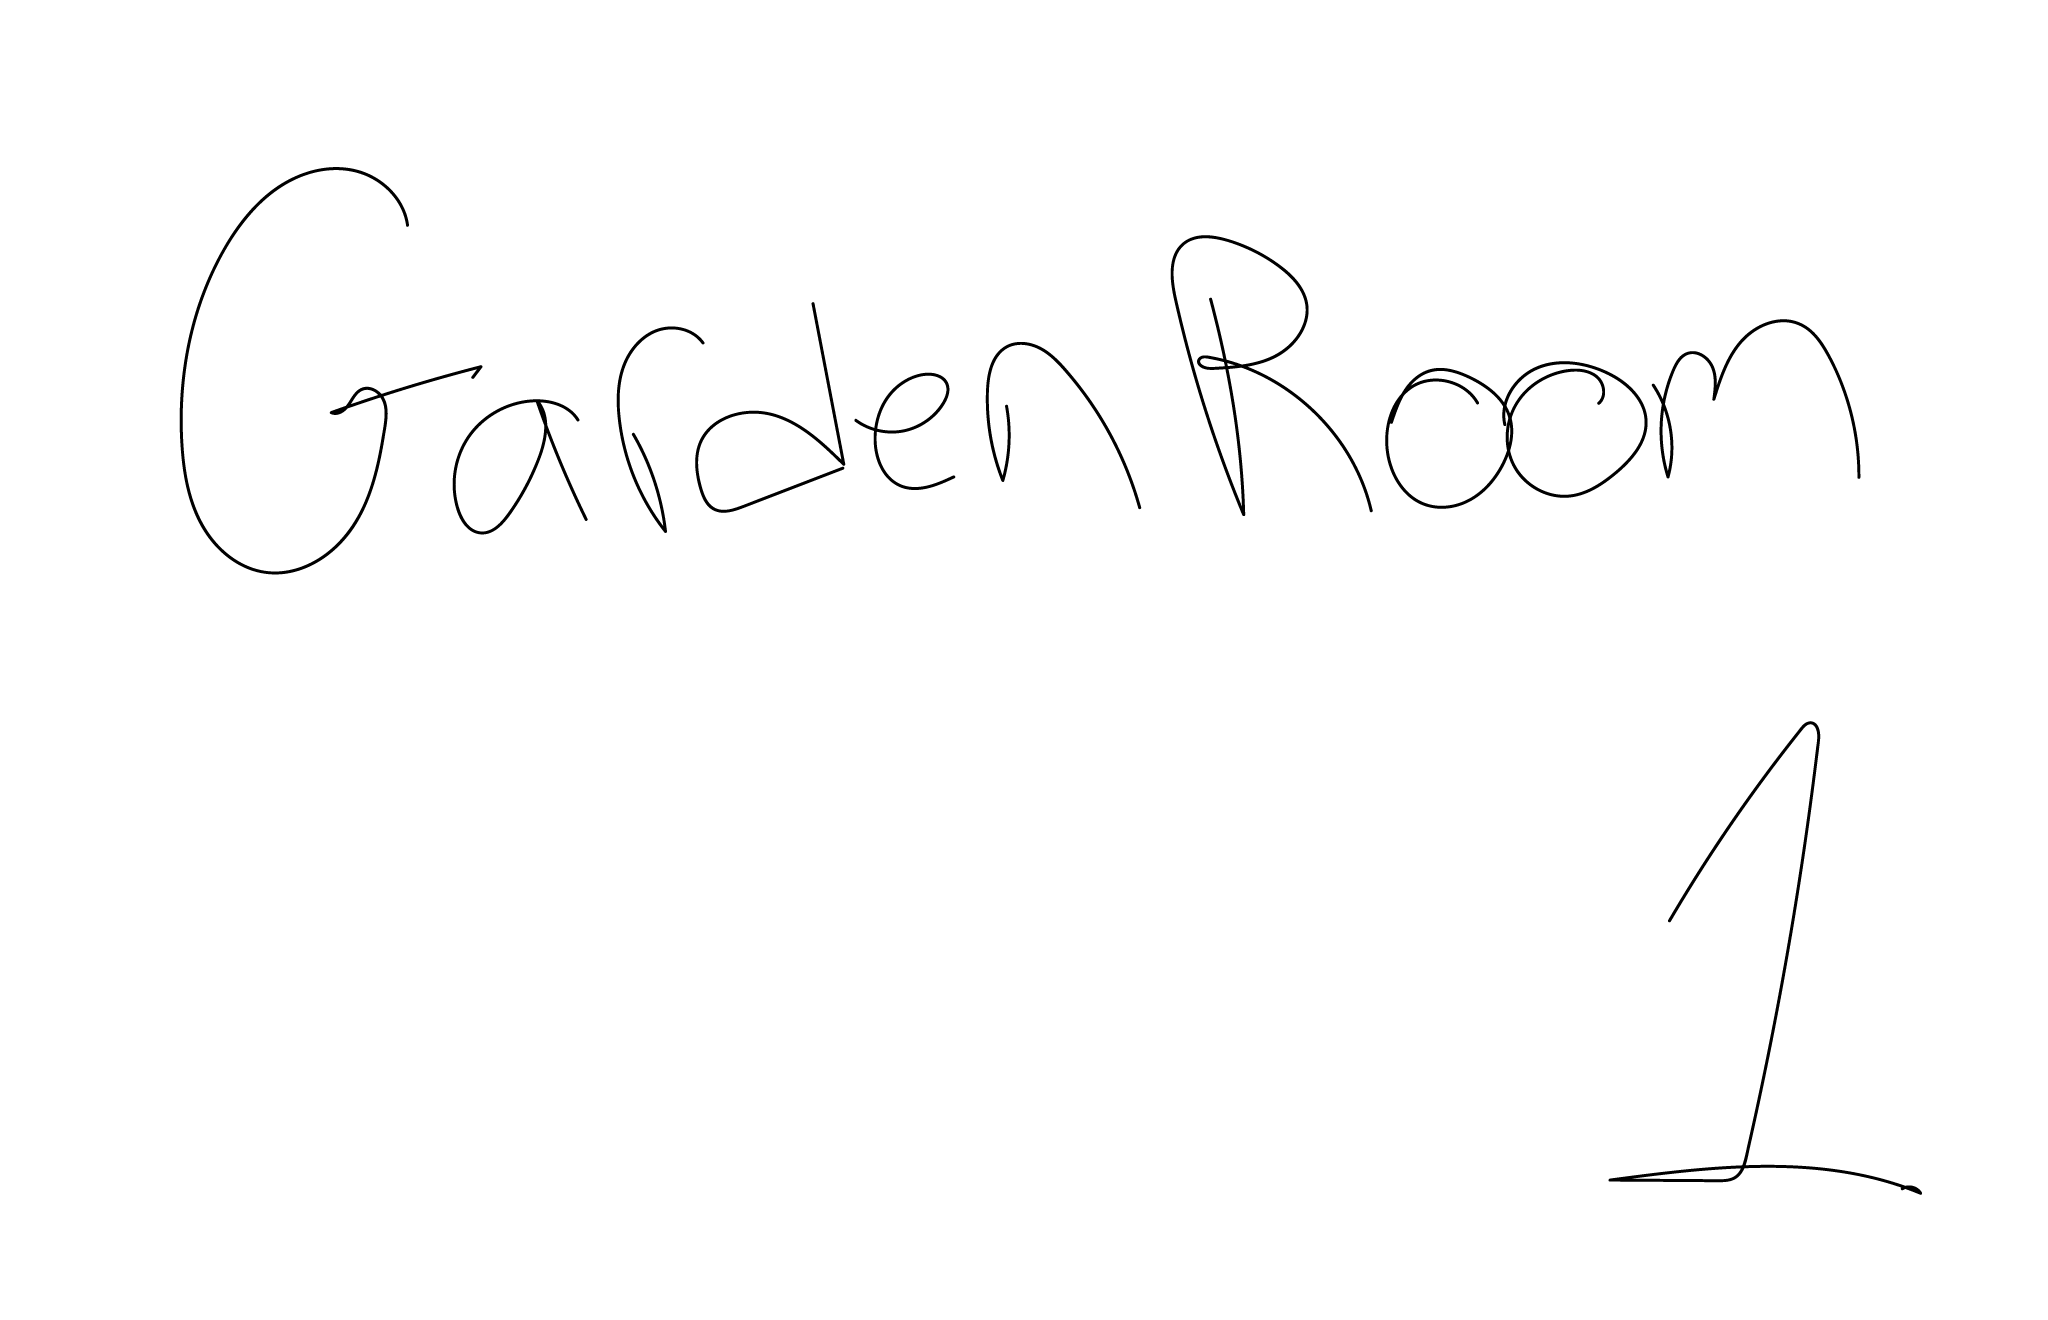 Garden Room
1